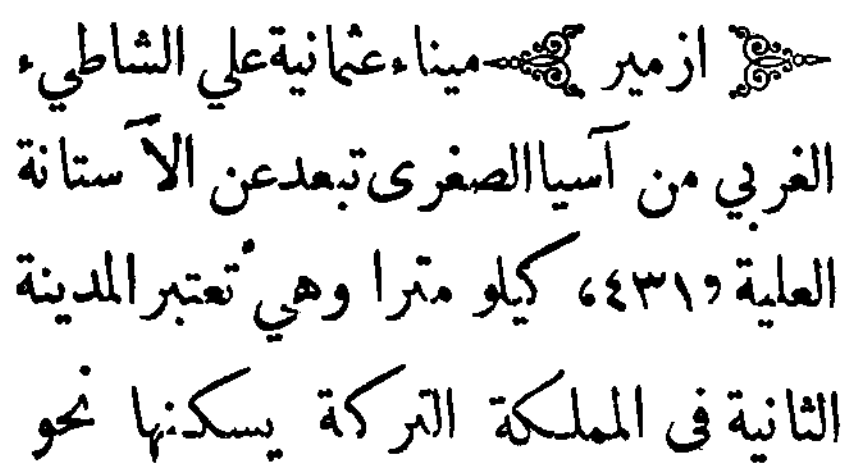 ﴿ ازمير ﴾ ميناء عثمانية علي الشاطيء
الغربي من آسيا الصغرى تبعد عن الآستانة
العلية «٤٣١» كيلو مترا وهي تُعتبر المدينة
الثانية فى المملكة التركة يسكنها نحو